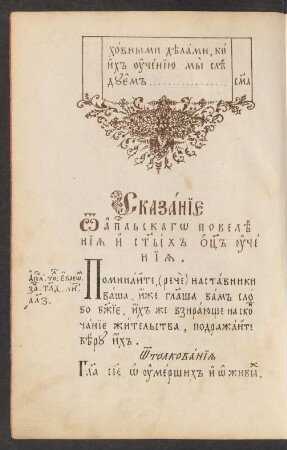 хо́вными дѣ́лами, ко
и́хъ оу҆че́нїю мы̀ слѣ́
дꙋемъ ............ сма
Сказа́нїе
ѿ а҆п҃льскагѡ повелѣ́
нїѧ и҆ ст҃ы́хъ ѻ҆ц҃ъ оу҆че́
нїѧ.
Помина́йте, (рече̑) наста́вники
ва́ша, и҆́же гл҃аша ва́мъ сло́
во бж҃їе, и҆́хъ же взира́юще на ско
нча́нїе жи́тельства, подража́йте
вѣ́рꙋ и҆́хъ.
Ѿ толкова́нїѧ
Гл҃а сїѐ ѡ҆ оу҆ме́ршихъ и҆ ѡ҆ живы́х,